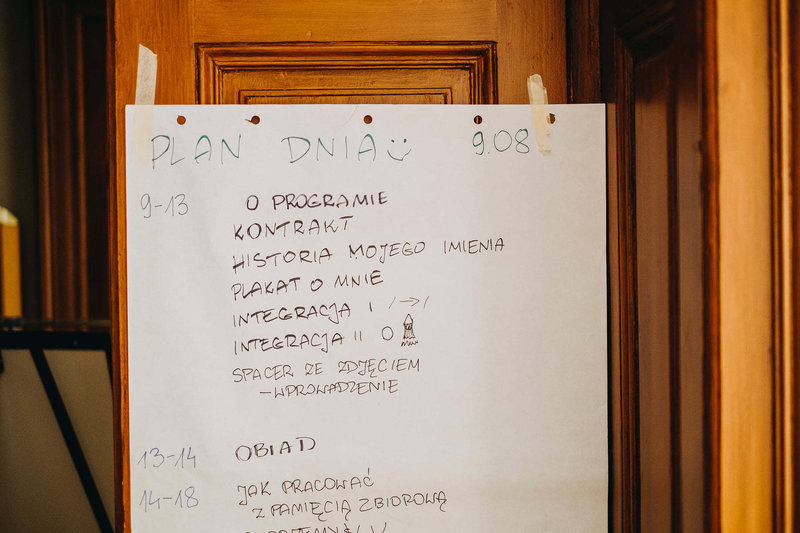 PLAN DNIA 9.08
9-13 O PROGRAMIE
KONTRAKT
HISTORIA MOJEGO IMIENIA
PLAKAT O MNIE
INTEGRACJA I /→/
INTEGRACJA II O
SPACER ZE ZDJĘCIEM
-WPROWADZENIE
13-14 OBIAD
14-18 JAK PRACOWAĆ
Z PAMIĘCIĄ ZBIOROWĄ